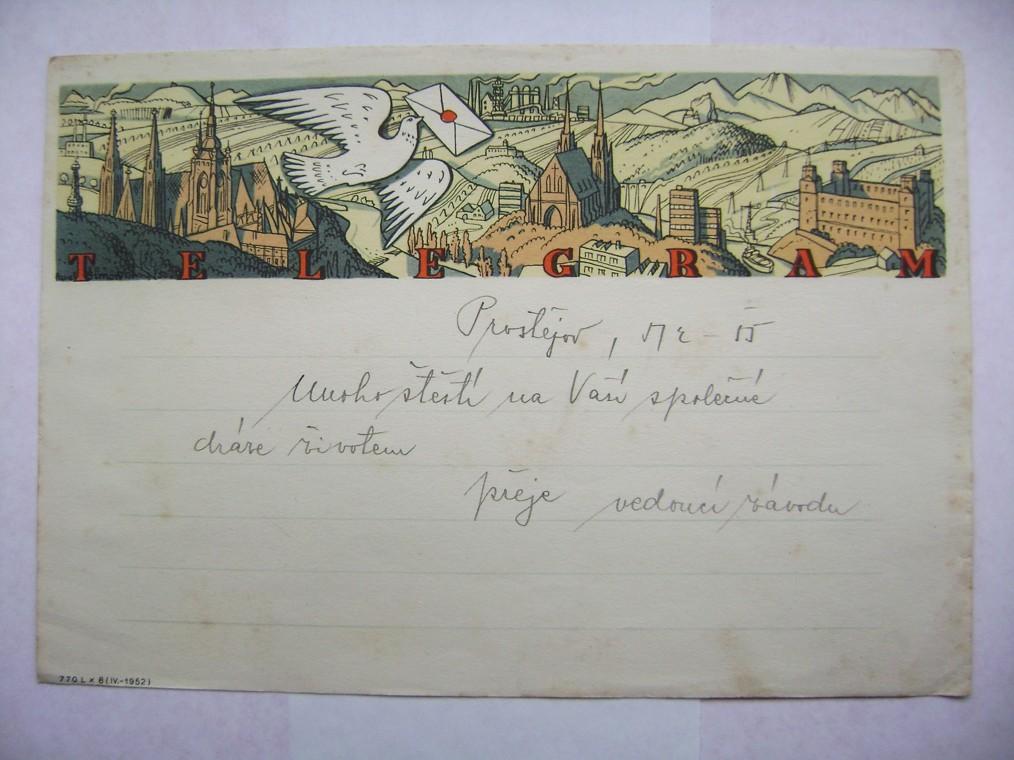 TELEGRAM
Prostějov,
Mnoho štěstí na Vaší společné
dráze životem
přeje vedoucí závodu
770 L x 8 (IV.-1952)